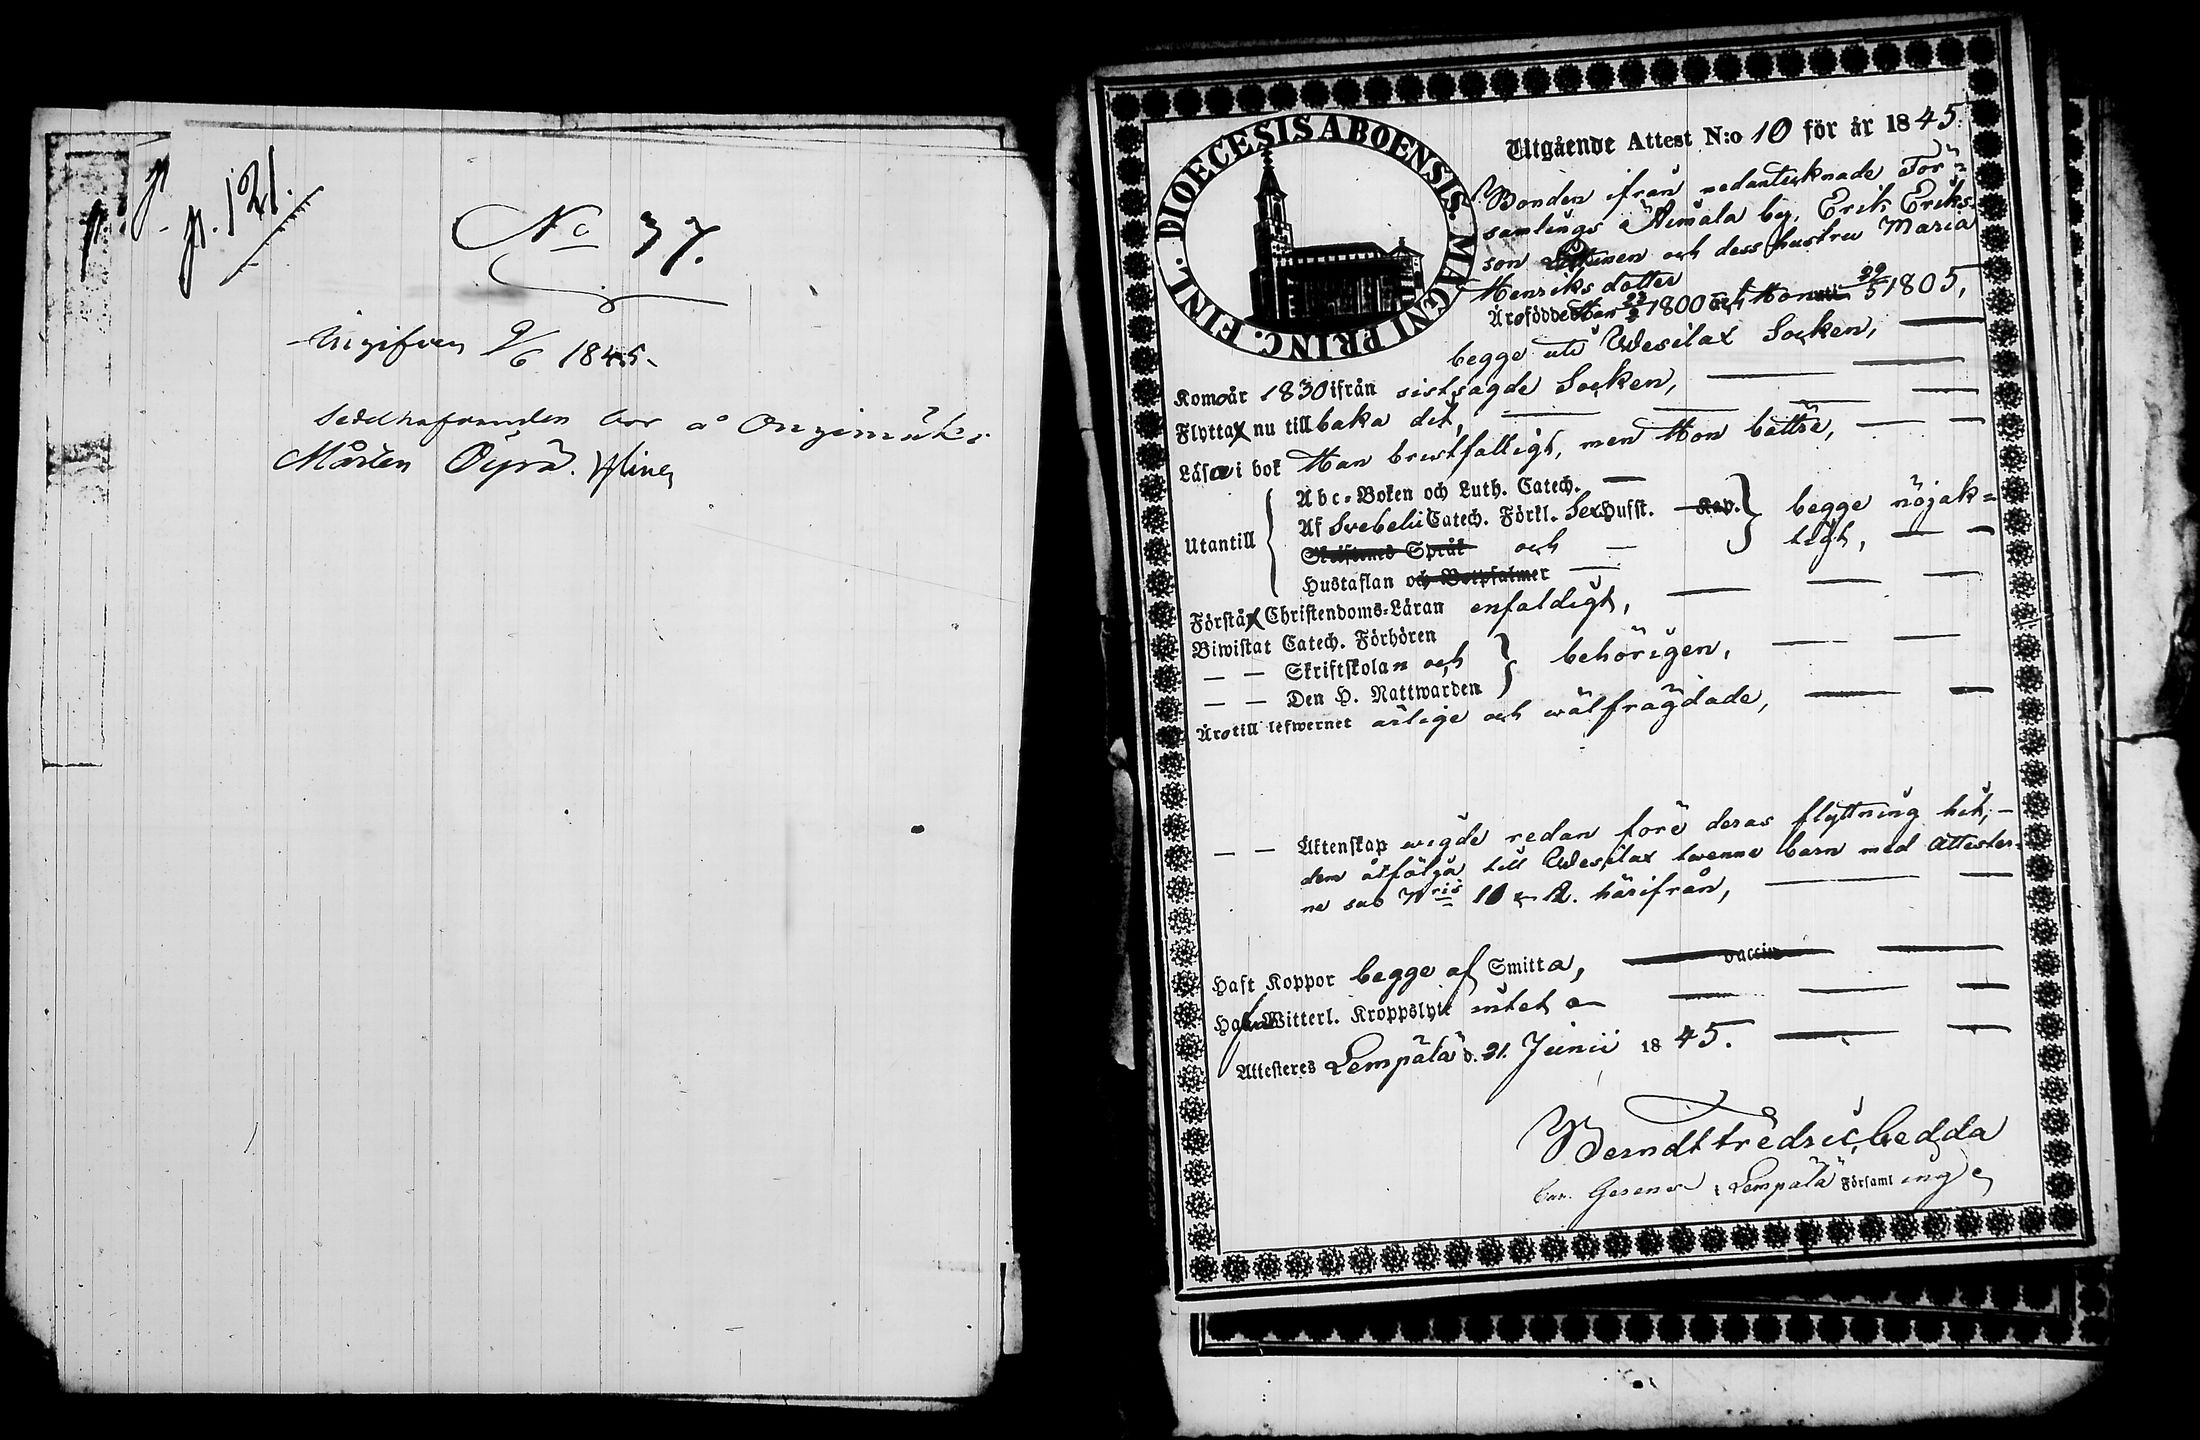 p. 121.
No 37.
Uigifven 9/6 1845.
Sedelhafvanden bor å
Mårten
DIOECESIS ABOENSIS. MAGNI PRINC. FINL.
Utgående Attest N:o 10 för år 1845.
Bonden ifrån nedantecknade För-
samlings by, Erik Eriks-
son och dess hustru Maria
Henriksdotter
Äro födde Han 23/2 1800 och Hon 29/5 1805,
begge uti Wesilax Socken,
Komo år 1830 ifrån sistsagde Socken,
Flytta nu till baka dit,
Läsa i bok Han bristfälligt, men Hon bättre,
Abc-Boken och Luth. Catech.
Af Svebelii Catech. Förkl. Sex Hufst. Kap.
Utantill
Skriftenes Språk och
Hustaflan och Botpsalmer
begge nöjak=
ligt,
Förstå Christendoms-Läran enfaldigt,
Biwistat Catech. Förhören
— — Skriftskolan och
— — Den H. Nattwarden
behörigen,
Äro till lefwernet ärlige och wälfrägdade,
— — Äktenskap wigde redan före deras flyttning hit,
dem åtfölja till Wesilax twenne barn med Attester-
ne sub N:ris 11 & 12. härifrån,
Haft Koppor begge af Smitta, vaccin
Hafva Witterl. Kroppslyte intet
Attesteres Lempälä d. 21. Junii 1845.
Berndt Fredric Gedda
i Lempälä Församling